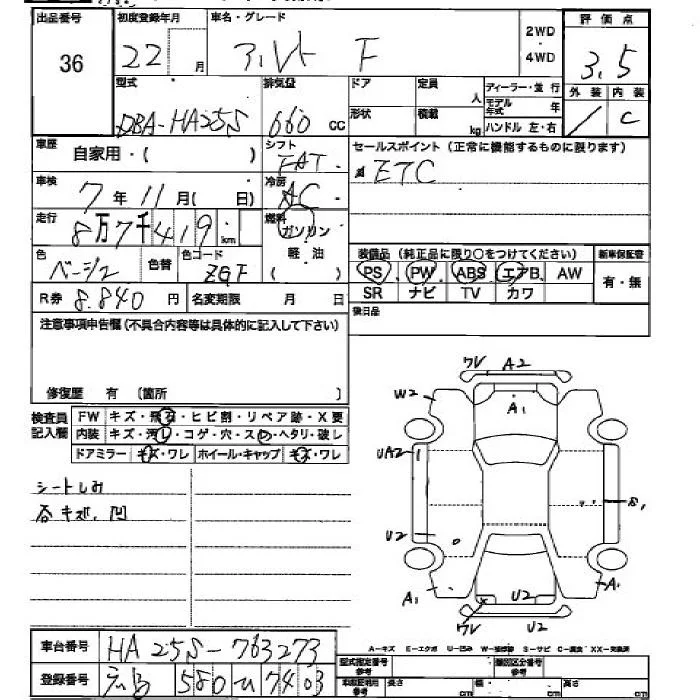 出品番号 初度登録年月 車名・グレード 評価点
36 22 月 アルト F 2WD・4WD 3.5
型式 排気量 ドア 定員 人 ディーラー・並行 外装 内装
DBA-HA25S 660 cc 形状 積載 kg モデル年式 年 / C
ハンドル 左・右
車歴 自家用・( ) シフト FAT セールスポイント(正常に機能するものに限ります)
車検 7年11月( 日) 冷房 AC ETC
走行 8万7千419km 燃料 ガソリン 軽油 ( )
装備品(純正品に限り○をつけてください) 新車保証書
色 ベージュ 色替 色コード ZGF PS PW ABS エアB AW 有・無
R券 8.840円 名変期限 月 日 SR ナビ TV カワ
後日品
注意事項申告欄(不具合内容等は具体的に記入して下さい)
修復歴 有 〔箇所 〕
検査員記入欄 FW キズ・飛石・ヒビ割・リペア跡・X要
内装 キズ・汚レ・コゲ・穴・スレ・ヘタリ・破レ
ドアミラー キズ・ワレ ホイール・キャップ キズ・ワレ
シートしみ
各キズ、凹
ワレ A2
W2 A1
UA2
B1
U2
A1 U2 A1
ワレ U2
車台番号 HA25S-763273
A-キズ E-エクボ U-凹み S-サビ C-腐食
登録番号 580 7403
型式指定番号 類別区分番号
長さ cm 幅 cm 高さ cm